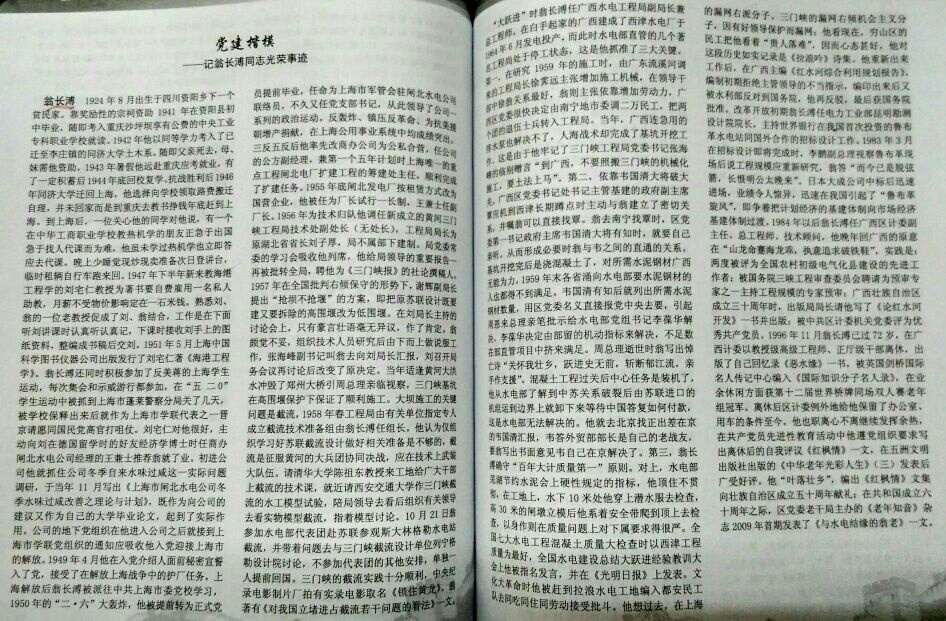 党建楷模
——记翁长溥同志光荣事迹
翁长溥 1924年8月出生于四川资阳乡下一个
贫民家。靠奖励性的宗祠资助1941年在资阳县初
中毕业,随即考入重庆沙坪坝享有公费的中央工业
专科职业学校就读。1942年他以同等学力考入了已
迁至李庄镇的同济大学土木系。随即父亲死去,母、
妹需他资助,1943年暑假他远赴重庆应考就业,有
了一定积蓄后1944年底回校复学。抗战胜利后1946
年同济大学迁回上海,他选择向学校领取路费搬迁
自理,并未回家而是到重庆去教书挣钱年底赶到上
海。到上海后,一位关心他的同学对他说,有一个
在中华工商职业学校教热机学的朋友正急于出国
急于找人代课而为难,他虽未学过热机学也立即答
应去代课。晚上少睡觉现炒现卖准备次日登讲台,
临时租辆自行车跑来回。1947年下半年新来教海港
工程学的刘宅仁教授为著书要自费雇用一名私人
助教,月薪不受物价影响定在一石米钱。熟悉刘、
翁的一位老教授促成了刘、翁结合,工作是在下面
听刘讲课时认真听认真记,下课时接收刘手上的图
纸资料,整编成书稿后交刘。1951年5月上海中国
科学图书仪器公司出版发行了刘宅仁著《海港工程
学》。翁长溥还同时积极参加了反美蒋的上海学生
运动,每次集会和示威游行都参加,在“五 二0”
学生运动中被抓到上海市蓬莱警察分局关了几天,
被学校保释出来后就作为上海市学联代表之一晋
京请愿同国民党高官打咀仗。刘宅仁对他很好,主
动向刘在德国留学时的好友经济学博士时任商办
闸北水电公司经理的王兼士推荐翁就了业。初进公
司他就抓住公司冬季自来水味过咸这一实际问题
调研,于当年11月写出《上海市闸北水电公司冬
季水味过咸改善之理论与计划》,既作为向公司的
建议又作为自己的大学毕业论文,起到了实际作
用。公司的地下党组织在他进入公司之后就接到上
海市学联党组织的通知应吸收他入党迎接上海市
的解放。1949年4月他在入党介绍人面前秘密宣誓
入了党,接受了在解放上海战争中的护厂任务。上
海解放后翁长溥被派往中共上海市委党校学习,
1950年的“二·六”大轰炸,他被提前转为正式党
员提前毕业,任命为上海市军管会驻闸北水电公司
联络员,不久又任党支部书记,从此领导了公司一
系列的政治运动,反轰炸、镇压反革命、为抗美援
朝增产捐献,在上海公用事业系统中均成绩突出。
三反五反后他率先改商办公司为公私合营,任公司
的公方副经理,兼第一个五年计划时上海唯一的重
点工程闸北电厂扩建工程的筹建处主任,顺利完成
了扩建任务。1955年底闸北发电厂按租赁方式改为
国营企业,他被任为厂长试行一长制,王兼士任副
厂长。1956年为技术归队他调任新成立的黄河三门
峡工程局技术处副处长(无处长)。工程局局长为
原湖北省省长刘子厚,局不属部下建制。局党委常
委的学习会吸收他列席,他给局领导的重要报告一
再被批转全局,聘他为《三门峡报》的社论撰稿人。
1957年在全国批判右倾保守的形势下,谢辉副局长
提出“抢坝不抢堰”的方案,即把原苏联设计既要
建又要拆除的高围堰改为低围堰。在刘局长主持的
讨论会上,只有豪言壮语毫无异议,作了肯定。翁
颇觉不妥,组织技术人员研究后由下而上做说服工
作,张海峰副书记叫翁去向刘局长汇报,刘召开局
务会议再讨论后改变了原决定。当年适逢黄河大洪
水冲毁了郑州大桥引周总理亲临视察,三门峡基坑
在高围堰保护下保证了顺利施工。大坝施工的关键
问题是截流,1958年春工程局由有关单位指定专人
成立截流技术准备组由翁长溥任组长。他认为仅组
织学习好苏联截流设计做好相关准备是不够的,截
流是征服黄河的大兵团协同决战,应在技术上武装
大队伍。请清华大学陈祖东教授来工地给广大干部
上截流的技术课,就近请西安交通大学作三门峡截
流的水工模型试验,陪局领导去看后组织有关领导
去看实物模型截流,指着模型讨论。10月21日翁
参加水电部代表团赴苏联参观斯大林格勒水电站
截流,并带着问题去与三门峡截流设计单位列宁格
勒设计院讨论,不参加代表团的其他安排,单独一
人提前回国。三门峡的截流实践十分顺利,中央纪
录电影制片厂拍有实录电影取名《锁住黄龙》。翁
著有《对我国立堵进占截流若干问题的看法》一文。
“大跃进”时翁长溥任广西水电工程局副局长兼
总工程师,在白手起家的广西建成了西津水电厂于
1964年6月发电投产,而此时水电部直管的几个著
名工程尚处于停工状态,这是他抓准了三大关键。
第一,在研究1959年的施工时,由广东流溪河调
来的工程局长徐霁远主张增加施工机械,在领导干
部中徐翁关系最好,翁则主张依靠增加劳动力。广
西区党委很快决定由南宁地市委调二万民工,把两
个团的退伍士兵转入工程局。当年,广西连急用的
排水泵也解决不了。人海战术却完成了基坑开挖工
务。这是由于他牢记了三门峡工程局党委书记张海
峰的临别赠言“到广西,不要照搬三门峡的机械化
施工,要土法上马”。第二,依靠韦国清大将破大
关,广西区党委书记处书记主管基建的政府副主席
覃应机到西津长期蹲点时主动与翁建立了密切关
系,并嘱翁可以直接找覃。翁去南宁找覃时,区党
委第一书记政府主席韦国清大将有知时,就要自己
亲听。从而形成必要时翁与韦之间的直通的关系。
基坑开挖完后是浇混凝土了,对所需水泥钢材广西
无能为力,1959年末各省涌向水电部要水泥钢材的
人也都得不到满足。韦国清有知后就列出所需水泥
钢材数量,用区党委名义直接报党中央去要,引起
周恩来总理亲笔批示给水电部党组书记李葆华解
决。李葆华决定由部留的机动指标来解决,不足数
在部直管项目中挤来满足。周总理逝世时翁写出悼
亡诗“关怀我壮乡,跃进史无前,斩断郁江流,亲
手作支援”。混凝土工程过关后中心任务是装机了,
他从水电部了解到中苏关系破裂后由苏联进口的
机组运到边界上就卸下来等待中国答复如何付款,
这是水电部无法解决的。他就去北京找正出差在京
的韦国清汇报,韦答外贸部部长是自己的老战友,
要翁写出书面意见韦自己在京解决了。第三,翁长
溥确守“百年大计质量第一”原则。对上,水电部
芜湖节约水泥会上硬性规定的指标,他顶住不贯
彻,在工地上,水下10米处他穿上潜水服去检查,
高30米的闸墩立模后他系着安全带爬到顶上去检
查,以身作则在质量问题上对下属要求得很严。全
国七大水电工程混凝土质量大检查时以西津工程
质量为最好,全国水电建设总结大跃进经验教训大
会上他被指名发言,并在《光明日报》上发表。文
化大革命时他被赶到拉浪水电工地编入都安民工
队去同吃同住同劳动接受批斗。他想过去,在上海
的漏网右派分子,三门峡的漏网右倾机会主义分
子,因有好领导保护而漏网;他看现在,穷山区的
民工把他看着“贵人落难”,因而心态甚好,他对
这段历史如实记录是《拉浪吟》诗集。他重新出来
工作后,在广西主编《红水河综合利用规划报告》,
编制初期拒绝主管领导的不当指示,编印出来后又
被水利部反对到国务院,他再反驳,最后获国务院
批准。改革开放初期翁长溥任电力工业部昆明勘测
设计院院长,主持世界银行在我国首次投资的鲁布
革水电站同国外合作的招标设计工作。1983年3月
在招标设计即将完成时,李鹏副总理视察鲁布革现
场后说工程规模应重新研究,翁答“而今已是脱弦
箭,长根明公太晚来”。日本大成公司中标后迅速
进场,业绩令人惊异,迅速在我国引起了“鲁布革
旋风”,即争着把计划经济的基建体制向市场经济
基建体制过渡。1984年以后翁长溥任广西区计委副
主任、总工程师、技术顾问,他晚年回广西的原意
在“山龙命蹇海龙乖,执意追求破铁鞋”,实践是:
两度被评为全国农村初级电气化县建设的先进工
作者;被国务院三峡工程审查委员会聘请为预审专
家之一主持工程规模的专家预审;广西壮族自治区
成立三十周年时,出版局局长请他写了《论红水河
开发》一书并出版;被中共区计委机关党委评为优
秀共产党员。1996年11月翁长溥已过72岁,在广
西计委以教授级高级工程师、正厅级干部离休,出
版了自己回忆录《恶水缘》一书,被英国剑桥国际
名人传记中心编入《国际知识分子名人录》,在业
余休闲方面获第十二届世界桥牌同场双人赛老年
组冠军。离休后区计委例外地给他保留了办公室、
用车的条件至今。他也联离心不离继续发挥余热,
在共产党员先进性教育活动中他遵党组织要求写
出离休后的自我评议《红枫情》一文,在五洲文明
出版社出版的《中华老年光彩人生》(三)发表后
广受好评。他“叶落壮乡”,编出《红枫情》文集
向壮族自治区成立五十周年献礼;在共和国成立六
十周年之际,区党委老干局主办的《老年知音》杂
志2009年首期发表了《与水电结缘的翁老》一文。